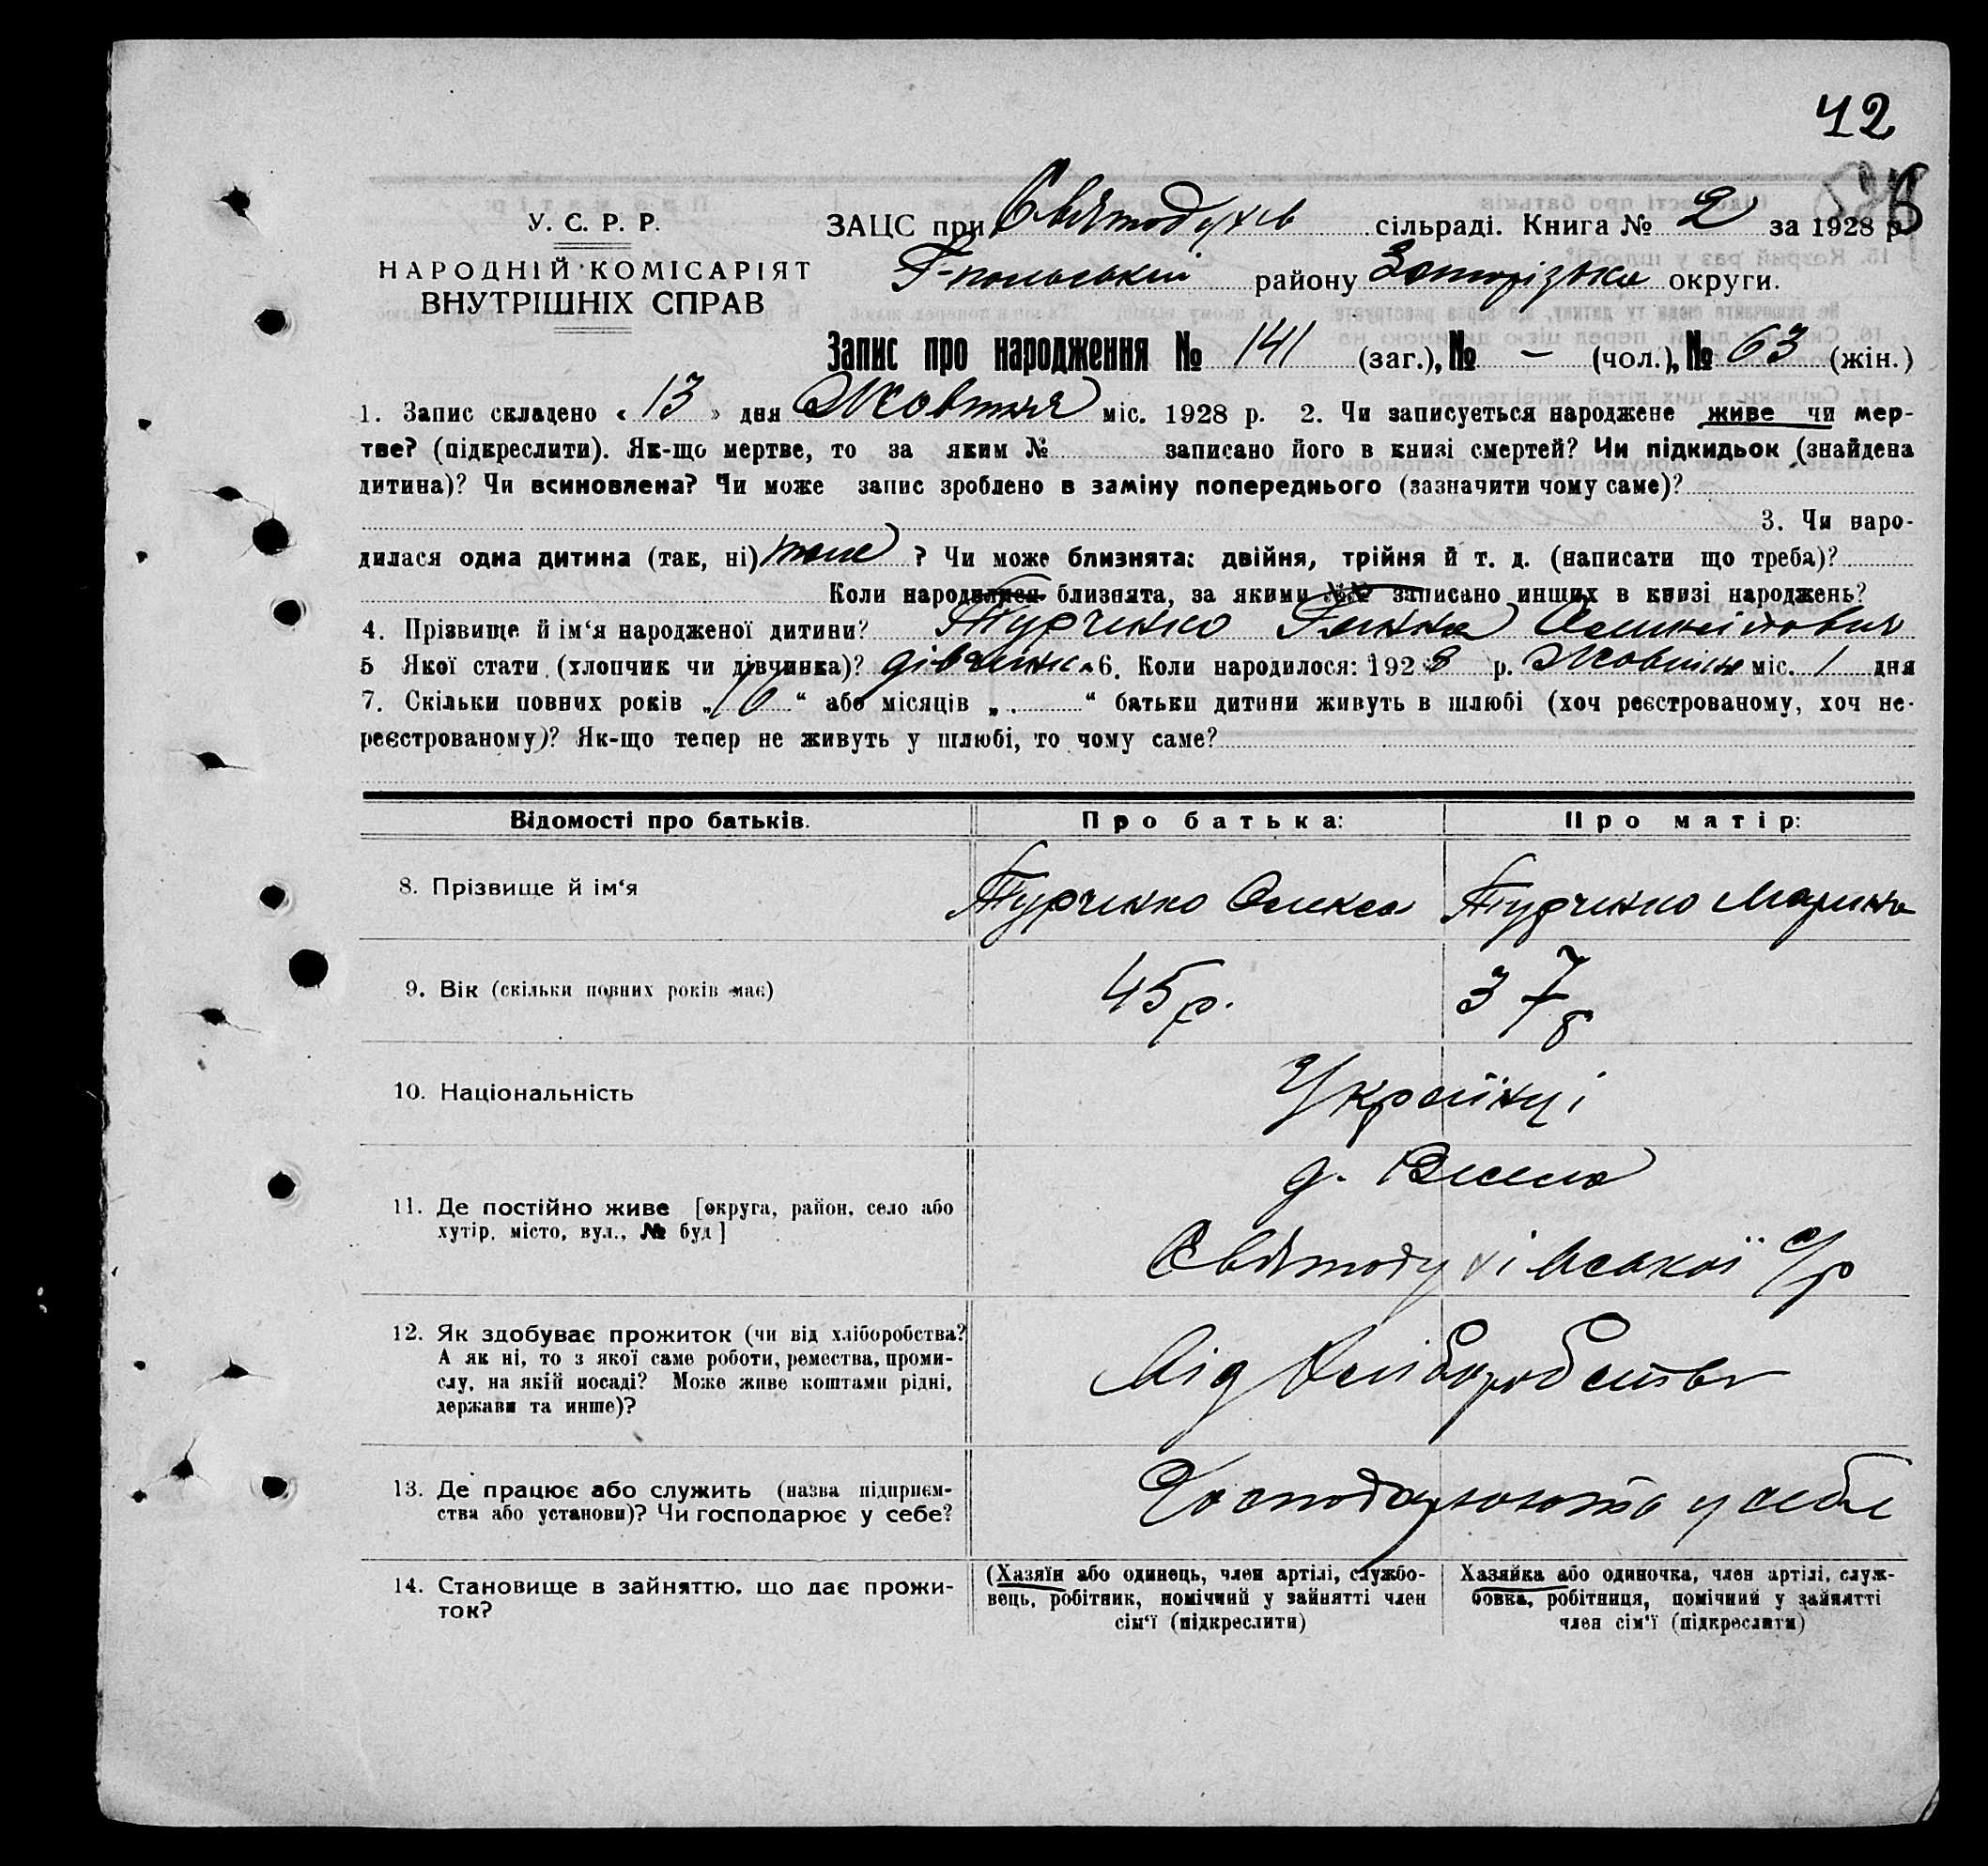 42
У. С. Р. Р.
НАРОДНІЙ КОМІСАРІЯТ
ВНУТРІШНІХ СПРАВ
ЗАЦС при Святодухів сільраді. Книга № 2 за 1928 р.
Г-польській району Запорізька округи.
Запис про народження № 141 (заг.), № – (чол.), № 63 (жін.)
1. Запис складено « 13 » дня Жовтня міс. 1928 р. 2. Чи записується народжене живе чи мер-
тве? (підкреслити). Як-що мертве, то за яким № записано його в книзі смертей? Чи підкидьок (знайдена
дитина)? Чи всиновлена? Чи може запис зроблено в заміну попереднього (зазначити чому саме)?
3. Чи наро-
дилася одна дитина (так, ні) так ? Чи може близнята: двійня, трійня й т. д. (написати що треба)?
Коли народилися близнята, за якими №№ записано инших в книзі народжень?
4. Прізвище й ім‘я народженої дитини? Турченко Ганна
5 Якої стати (хлопчик чи дівчинка)? дівчинка 6. Коли народилося: 1928 р. Жовтня міс. 1 дня
7. Скільки повних років „ 10 “ або місяців „ “ батьки дитини живуть в шлюбі (хоч реєстрованому, хоч не-
реєстрованому)? Як-що тепер не живуть у шлюбі, то чому саме?
Відомості про батьків. Про батька: Про матір:
8. Прізвище й ім‘я Турченко Олекса Турченко Марина
9. Вік (скільки повних років має) 45 р. 37 р
10. Національність Українці
11. Де постійно живе [округа, район, село або
хутір, місто, вул., № буд]
д. Весела
Святодухівської с/р
12. Як здобуває прожиток (чи від хліборобства?
А як ні, то з якої саме роботи, ремества, проми-
слу, на якій посаді? Може живе коштами рідні,
держави та инше)?
Від Хліборобства
13. Де працює або служить (назва підприєм-
ства або установи)? Чи господарює у себе?
Господарюють у себе
14. Становище в зайняттю, що дає прожи-
ток?
(Хазяїн або одинець, член артілі, службо-
вець, робітник, помічний у зайнятті член
сім‘ї (підкреслити)
Хазяйка або одиночка, член артілі, служ-
бовка, робітниця, помічний у зайнятті
член сім‘ї (підкреслити)